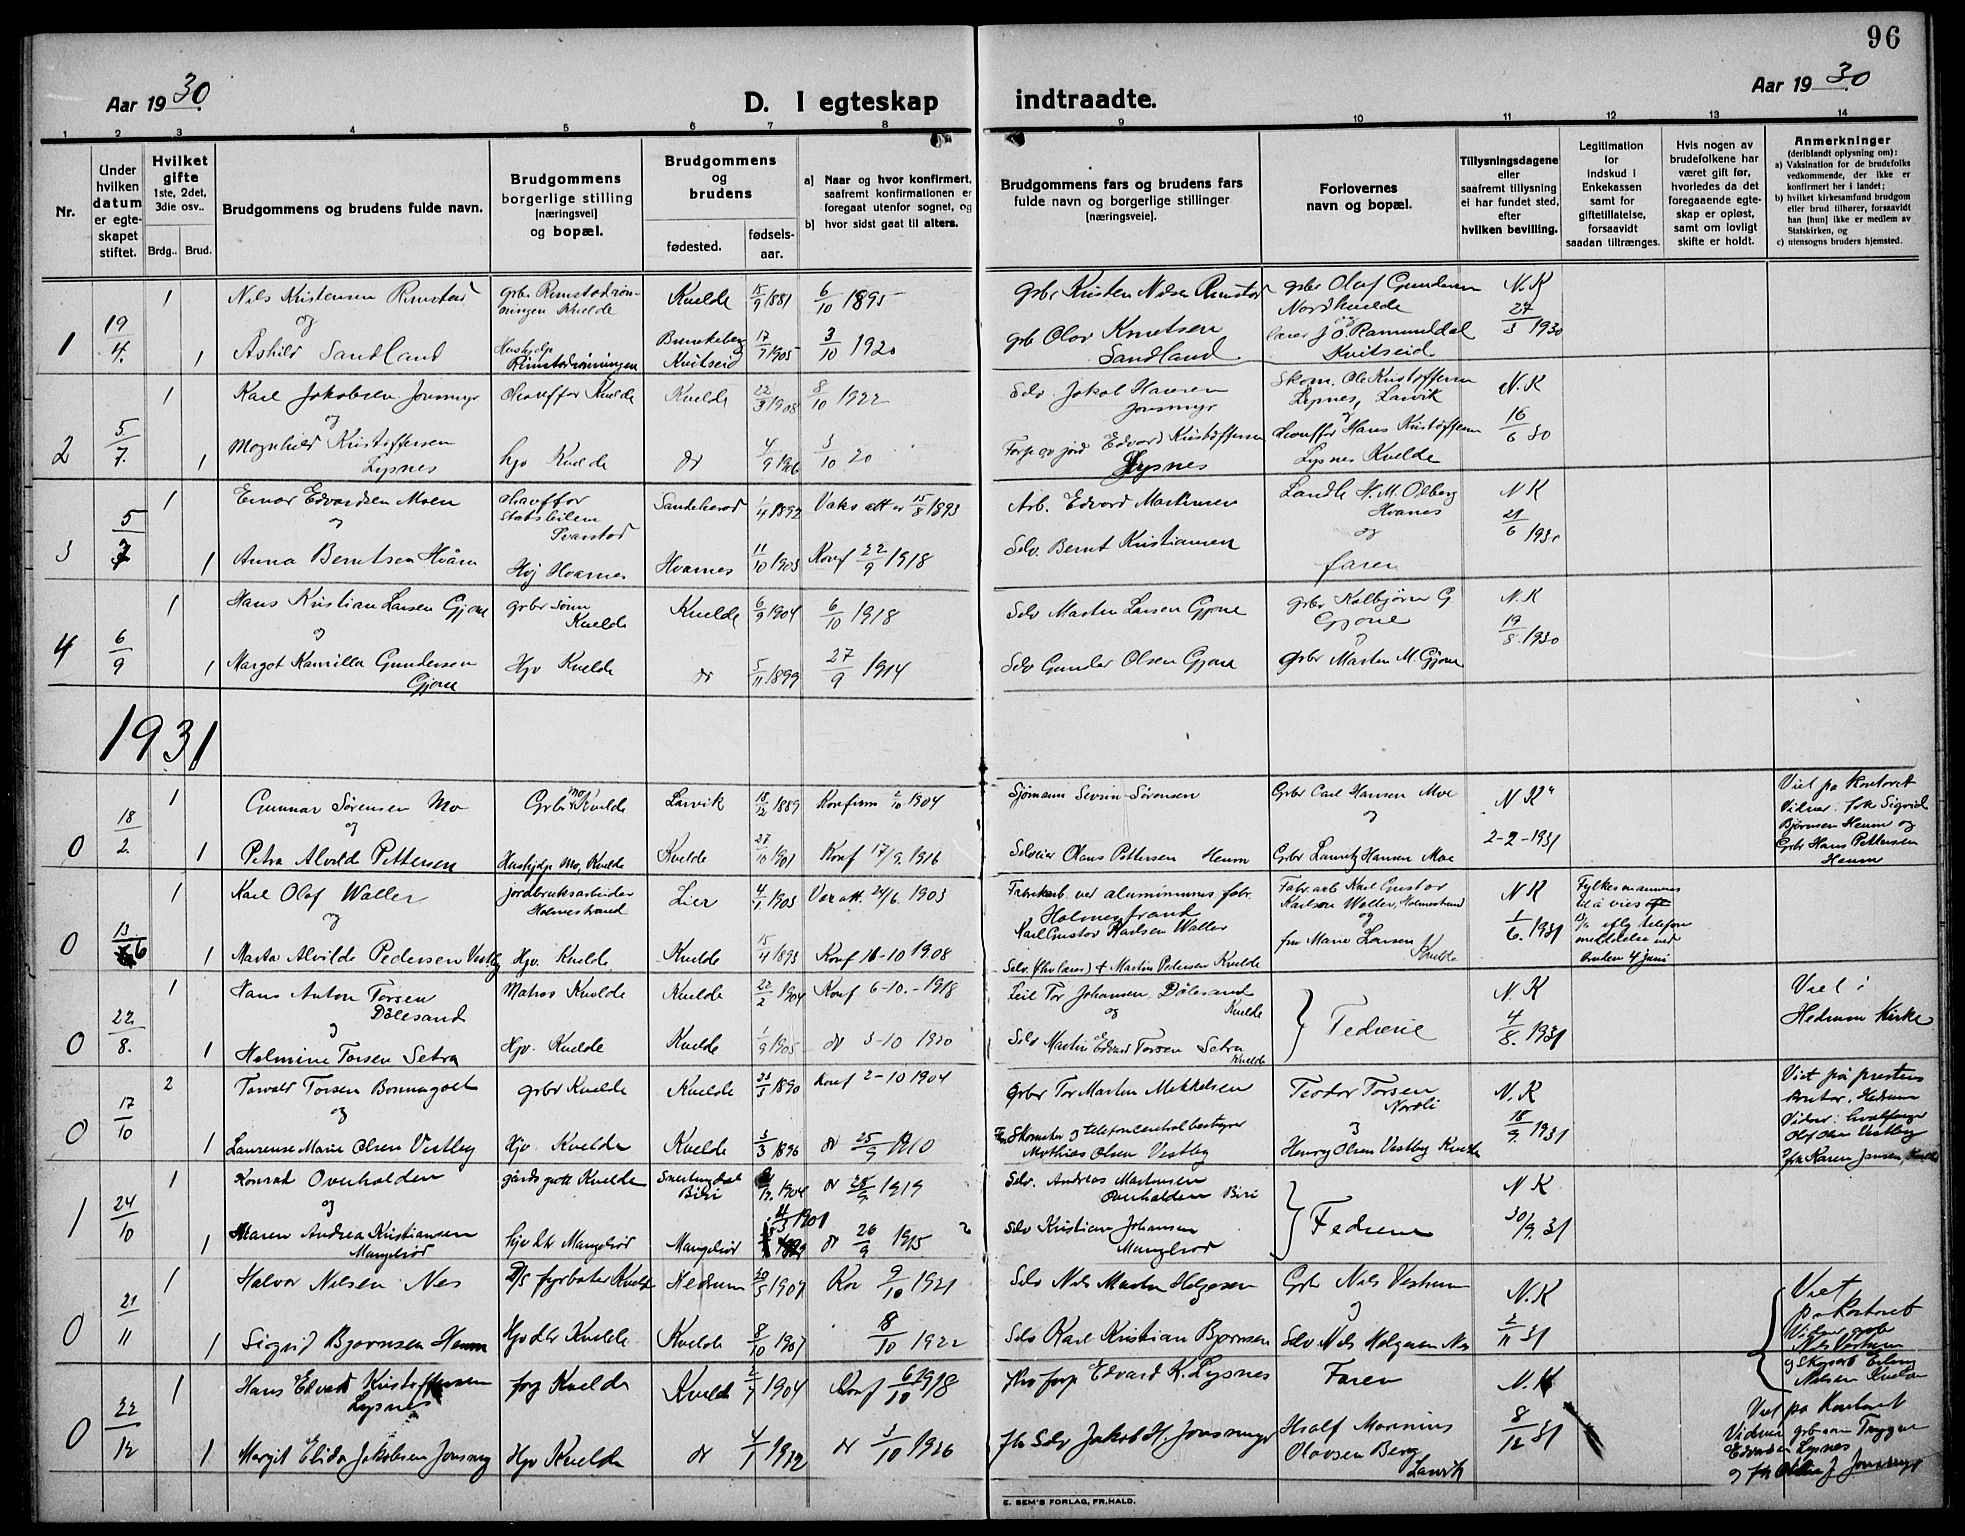 96
Aar 1930.
D. I egteskap
indtraadte.
Aar 1930
1 2 3 4 5 6 7 8 9 10 11 12 13 14
Nr.
Under
hvilken
datum
er egte-
skapet
stiftet.
Hvilket
gifte
1ste, 2det,
3die osv..
Brdg.. Brud.
Brudgommens og brudens fulde navn.
Brudgommens
borgerlige stilling
[næringsvei]
og bopæl.
Brudgommens
og
brudens
fødested.
fødsels-
aar.
a) Naar og hvor konfirmert,
saafremt konfirmationen er
foregaat utenfor sognet, og
b) hvor sidst gaat til alters.
Brudgommens fars og brudens fars
fulde navn og borgerlige stillinger
[næringsveie].
Forlovernes
navn og bopæl.
Tillysningsdagene
eller
saafremt tillysning
ei har fundet sted,
efter
hvilken bevilling.
Legitimation
for
indskud i
Enkekassen
samt for
giftetillatelse,
forsaavidt
saadan tiltrænges.
Hvis nogen av
brudefolkene har
været gift før,
hvorledes da det
foregaaende egte-
skap er opløst,
samt om lovligt
skifte er holdt.
Anmerkninger
(deriblandt oplysning om):
a) Vaksination for de brudefolks
vedkommende, der ikke er
konfirmert her i landet;
b) hvilket kirkesamfund brudgom
eller brud tilhører, forsaavidt
han [hun] ikke er medlem av
Statskirken, og
c) utensogns bruders hjemsted.
1 19/4. 1 Nils Kristensen Rimstad Kvelde 15/9 1881 6/10 1895 gbr Kristen Nilsen Rimstad gbr Olaf Gundersen N.K
og Nordkvelde 27/3 1930
1 Åshild Sandland Brunkeberg 17/9 1905 3/10 1920 gbr Olav Knutsen
Kvitseid Sandland Kvitseid
2 5/7. 1 Karl Jakobsen Jonsmyr chauffør Kvelde Kvelde 22/3 1908 8/10 1922 Selv. Jakob Hansen Skom. Ole Kristoffersen N.K
og Jonsmyr Lysnes, Larvik 16/6 30
1 Magnhild Kristoffersen hjv Kvelde do 4/9 1906 3/10 20 Edvard Kristoffersen chauffør Hans Kristoffersen
Lysnes Lysnes Lysnes Kvelde
3 5/7 1 Einar Edvardsen Moen chauffør Sandeherad 1/4 1892 Vaks att 15/8 1893 Arb. Edvard Martinsen Landh H. M. Olberg N K
og Statsbilen Hvarnes 21/6 1930
Svarstad og
1 Anna Berntsen Hvåra Hjv Hvarnes Hvarnes 11/10 1903 Konf 22/9 1918 Selv. Bernt Kristiansen faren
4 6/9 1 Hans Kristian Larsen Gjone gbr sønn Kvelde 6/9 1904 6/10 1918 Selv Martin Larsen Gjone gbr Kolbjørn G N.K
og Kvelde Gjone 19/8. 1930
1 Margot Kamilla Gundersen Hjv Kvelde do 5/11 1899 27/9 1914 Selv Gunder Olsen Gjone gbr Martin M. Gjone
Gjone
1931
0 18/2. 1 Gunnar Sørensen Mo Gbr Mo Kvelde Larvik 18/12 1889 Konfirm 2/10 1904 Sjømann Sevrin Sørensen Gbr Carl Hansen Moe N K Viet på kontoret
og og 2-2-1931 Vidner: frk Sigrid
Bjørnsen Heum og
1 Petra Alvilde Pettersen Hushjelp Mo, Kvelde Kvelde 27/10 1901 Konf 17/9. 1916 Selveier Olaus Pettersen Heum Gbr Lauritz Hansen Moe Gbr Hans Pettersen
Heum
0 13/6 1 Karl Olaf Waller jordbruksarbeider Lier 4/1 1903 Vax att. 24/6. 1903 Fabrikarb. ved aluminiums fabr. Fabr. arb Karl Gustav N K Fylkesmannens
og Holmestrand Holmestrand Karlsen Waller, Holmestrand 1/6. 1931
Karl Gustav Karlsen Waller og telefon
1 Marta Alvilde Pedersen Vestby Hjv. Kvelde Kvelde 15/4 1893 Konf 16-10 1908 Selv. (fhv lærer) + Martin Pedersen Kvelde fru Marie Larsen meddelelse
Kvelde bruden 4 juni
0 22/8. 1 Hans Anton Torsen Matros Kvelde Kvelde 22/2 1904 Konf 6-10.-1918 Leil Tor Johansen Dølesand } Fedrene N.K Viet i
og Dølesand Kvelde 4/8. 1931 Hedrum Kirke
1 Holmine Torsen Setra Hjv. Kvelde Kvelde 1/9 1905 do 3-10 1920 Selv Martin Edvard Torsen Setra
Kvelde
0 17/10 2 Torvald Torsen Bonnegolt gbr Kvelde Kvelde 23/3 1890 Konf 2-10 1904 gbr Tor Martin Mikkelsen Teodor Torsen N.K Viet på prestens
og Nordli 18/9. 1931 kontor. Hedrum
Skomaker og telefoncentralbestyrer og Vidner: hvalfanger
1 Laurense Marie Olsen Vestby Hjv. Kvelde Kvelde 3/3 1896 do 25/9 1910 Mathias Olsen Vestby Henry Olsen Vestby Kvelde Olaf Olsen Vestby
frk Karen Jansen, Kvelde
1 24/10 1 Konrad Overhalden gårdsgutt Kvelde Snertingdal 1904 do 28/9. 1919 Selv. Andreas Martinsen } Fedrene N K
og Biri Overhalden Biri 30/9. 31
1 Maren Andrea Kristiansen hjv Mangelrød Mangelrød 4/3 1901 do 26/9 1915 Selv Kristian Johansen
Mangelrød Mangelrød
0 21/11 1 Halvor Nilsen Nes D/S fyrbøter Kvelde Hedrum 20/5 1907 Kon 9/10 1921 Selv Nils Martin Helgesen Gbr Nils Vestrum N.K Viet
og 2/11 31 på kontoret
1 Sigrid Bjørnsen Heum Hjv Kvelde Kvelde 8/10 1907 8/10 1922 Selv Karl Kristian Bjørnsen Selv Nils Helgesen Nes Vidner gbr
Nils Vestrum
og Erling
Nielsen Kvelde
0 22/12 1 Hans Edvard Kristoffersen Kvelde Kvelde 2/7 1904 Konf 6/10 1918 fhv Edvard K. Lysnes Faren N.K Viet på Kontoret
Lysnes 8/12 31 Vidner gbr sønn Trygve
1 Margit Elida Jakobsen Jonsmyr Hjv Kvelde do do 3/10 1926 fhv Selv Jakob H. Jonsmyr Hjalf Marinius Edvardsen Lysnes
Olavsen Berg og frk Jonsmyr
Larvik
E. SEM'S FORLAG, FR.HALD.